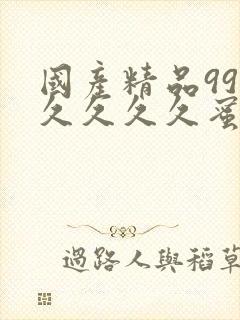 國產精品99
久久久久蜜
過路人與稻草